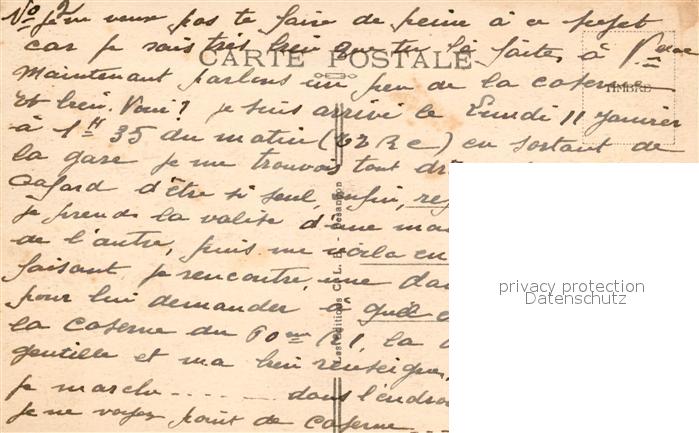 No 2
je ne veux pas te faire de peine à ce sujet
car je sais très bien que tu
CARTE POSTALE
Maintenant parlons un peu de la caserne
TIMBRE
Eh bien. Voici! je suis arrivé le Lundi 11 Janvier
à 1 H 35 du matin ( en sortant de
la gare je me trouvais tout
Cafard d'être si seul, enfin,
je prends la valise d'une
de l'autre, puis me voila en
faisant je rencontre, une
pour lui demander à
la caserne du 60 eme R I, la
gentille et m'a bien renseigner,
je marche ........ dans l'endro
je ne voyez point de caserne ...
Les Editions C. L. B. - Besançon
privacy protection
Datenschutz